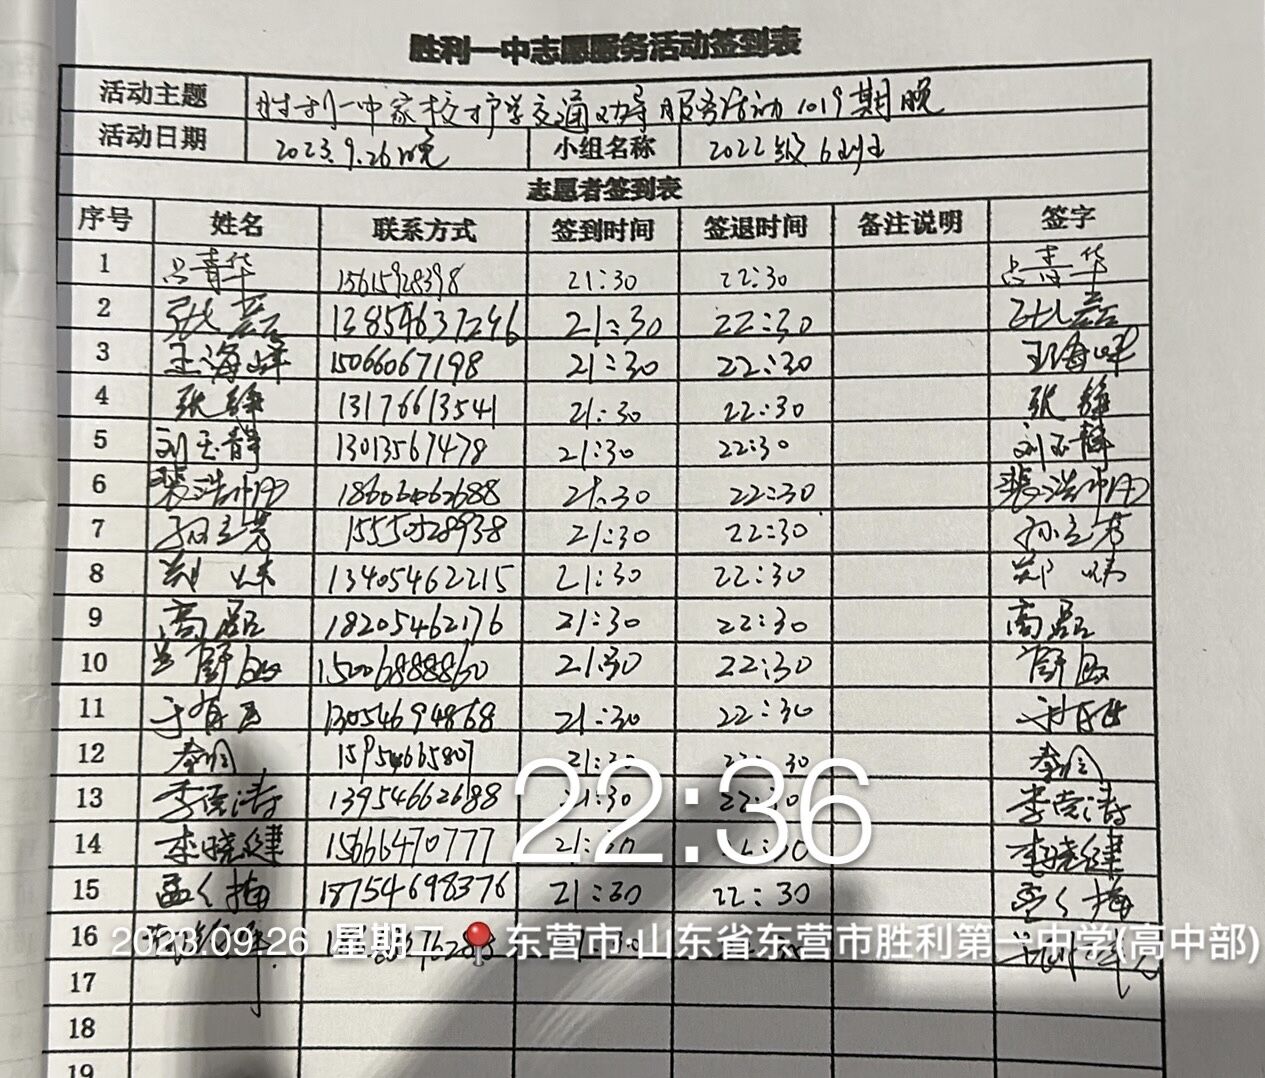 胜利一中志愿服务活动签到表
活动主题 胜利一中家校护学交通劝导服务活动1019期晚
活动日期 2023.9.26晚 小组名称 2022级6部
志愿者签到表
序号 姓名 联系方式 签到时间 签退时间 备注说明 签字
1 吕青华 15615928398 21:30 22:30 吕青华
2 张磊 13854637246 21:30 22:30 张磊
3 王海峰 15066067198 21:30 22:30 王海峰
4 张静 13176613541 21:30 22:30 张静
5 刘玉静 13013567478 21:30 22:30 刘玉静
6 21:30 22:30
7 孙立芳 21:30 22:30 孙立芳
8 郑 13405462215 21:30 22:30 郑
9 高 18205462176 21:30 22:30 高
10 15006888860 21:30 22:30
11 于 13054694868 21:30 22:30 于
12 22:30
13 13954662688 21:30 22:30
14 李晓健 15666470777 21:30 李晓健
15 孟 梅 18754698376 21:30 22:30 孟 梅
16
17
18
19
22:36
2023.09.26 星期二 东营市·山东省东营市胜利第一中学(高中部)